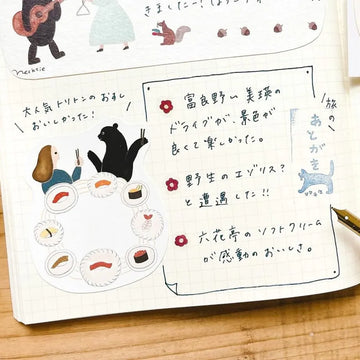 きましたー!
nerktie
大人気トリトンのおすし
おいしかった!
富良野〜美瑛の
ドライブが、景色が
良くて楽しかった。
野生のエゾリス?
と遭遇した!!
六花亭のソフトクリーム
が感動のおいしさ。
旅の
あとがき